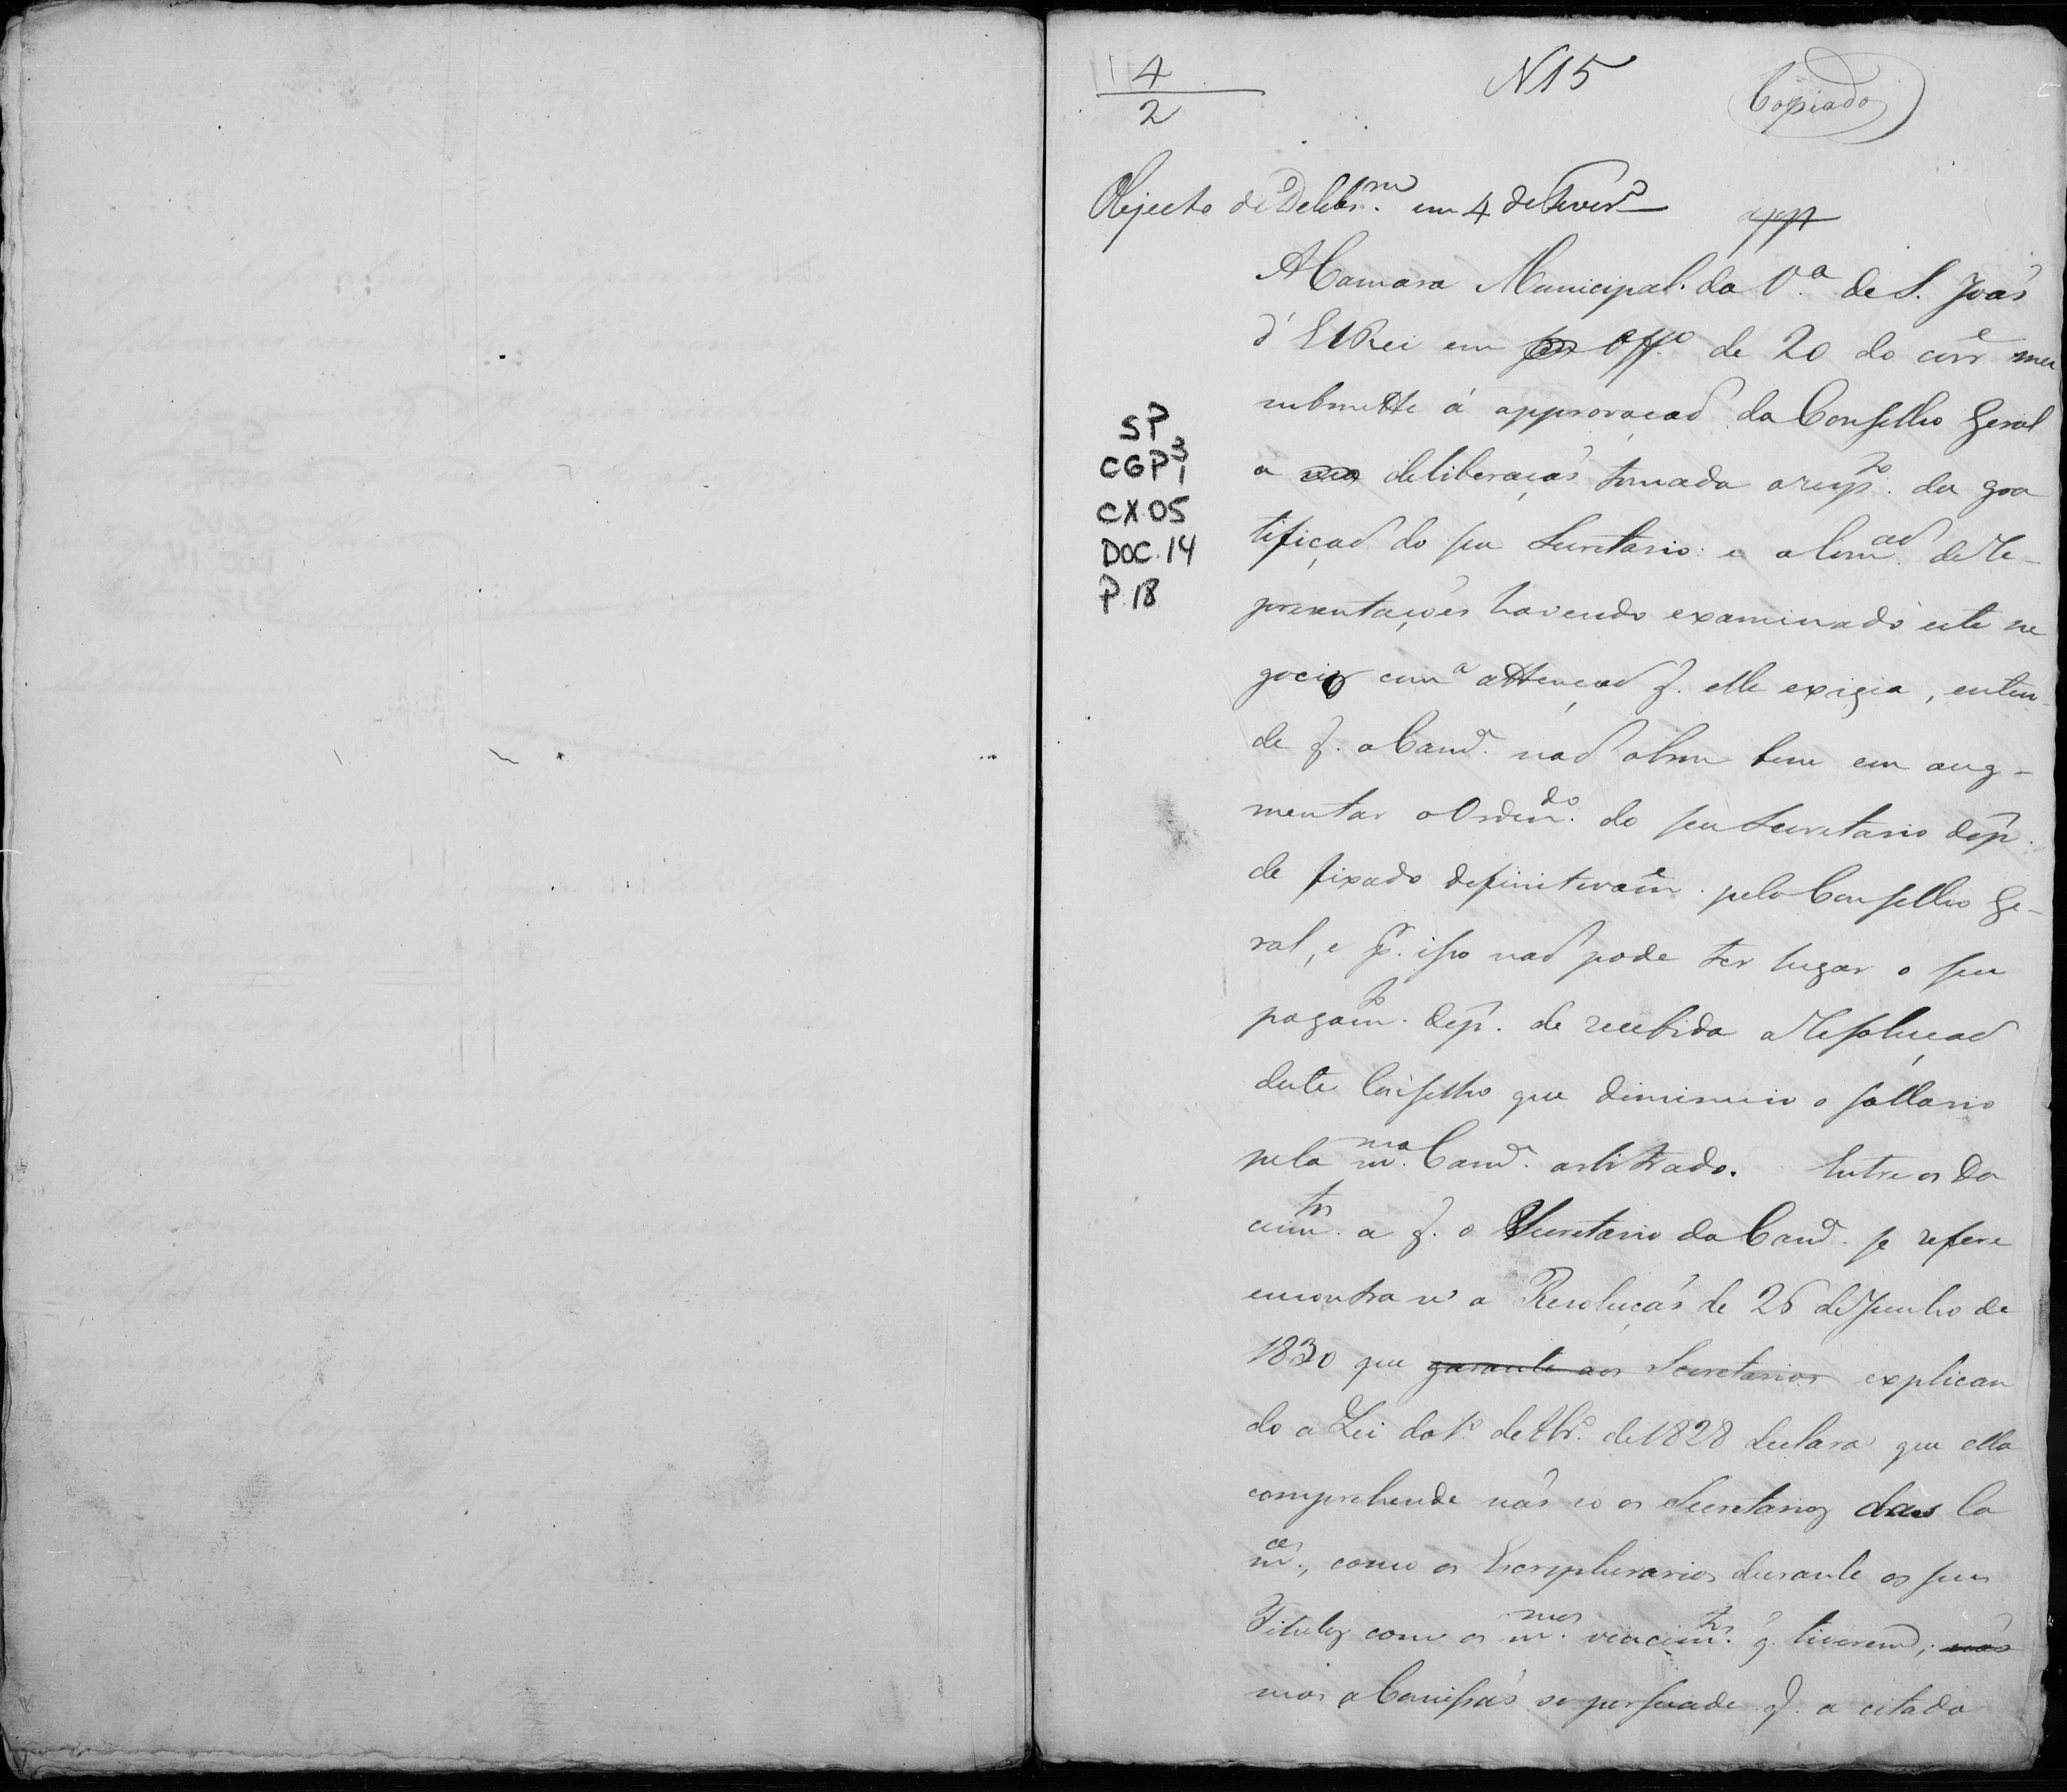 4
2
N 15
Copiado
Objecto de Delibm. em 4 de Fever.º
app
A Camara Municipal da V.ª de S. Joaõ
d'ElRei em seu Off.º de 20 do corr.e mez
submette á approvaçaõ do Conselho Geral
a sua deliberaçaõ tomada a resp.to da gra
tificaçaõ do seu Secretario: e a Com.aõ de Re-
presentações havendo examinado este ne
gocio com a attençaõ q. elle exigia, enten-
de q. a Cam.ª naõ obrou bem em aug-
mentar o Orden.do do seu Secretario dep.
de fixado definitivam.e pelo Conselho Ge-
ral, e p.r isso naõ pode ter lugar o seu
pagam.to dep. de recebida a Resoluçaõ
deste Conselho que diminuio o sallario
pela m.ma Cam.ª arbitrado. Entre os Do
cum.tos a q. o Secretario da Cam.ª se refere
encontra-se a Resoluçaõ de 26 de Junho de
1830 que garante aos Secretarios explican
do a Lei do 1.º de 8br.º de 1828 declara que ella
comprehende naõ só os Secretarios das Ca
m.as, como os Escripturarios durante os seus
Titulos com os m.mos vencim.tos q. tiverem; mas
mas a Comissaõ se persuade q. a citada
SP
CGP 3
1
CX.05
DOC.14
P.18